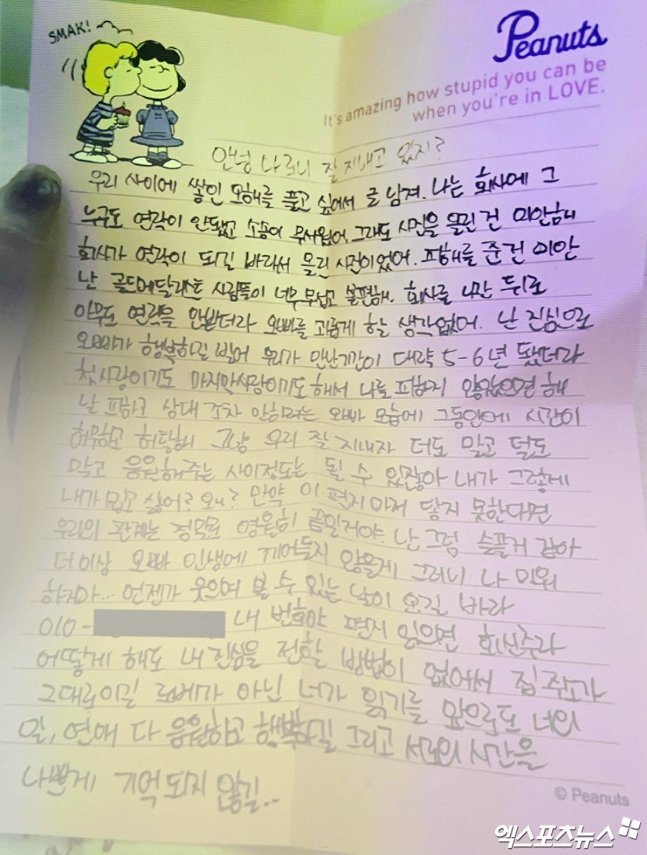 SMAK!
Peanuts
It's amazing how stupid you can be
when you're in LOVE.
안녕 나 론이 잘 지내고 있지?
우리 사이에 쌓인 오해를 풀고 싶어서 글 남겨. 나는 회사에 그
누구도 연락이 안됐고 소송이 무서웠어. 그래도 사진을 올린 건 미안해
회사가 연락이 되길 바라서 올린 사진이었어. 피해를 준건 미안
난 골드메달리스트 사람들이 너무 무섭고 불편해. 회사를 나간 뒤로
아무도 연락을 안받더라 오빠를 괴롭게 할 생각없어. 난 진심으로
오빠가 행복하길 빌어 우리가 만난기간이 대략 5-6년 됐더라
첫사랑이기도 마지막사랑이기도해서 나를 피하지 않았으면 해
날 피하고 상대 조차 안하려는 오빠 모습에 그동안에 시간이
허무하고 허탈해 그냥 우리 잘 지내자 더도 말고 덜도
말고 응원해주는 사이정도는 될 수 있잖아 내가 그렇게
내가 밉고 싫어? 왜? 만약 이 편지마저 닿지 못한다면
우리의 관계는 정말로 영원히 끝일거야. 난 그럼 슬플거 같아
더이상 오빠 인생에 끼어들지 않을게 그러니 나 미워
하지마.. 언젠가 웃으며 볼 수 있는 날이 오길 바라
010- 내 번호야 편지 읽으면 회신주라
어떻게 해도 내 진심을 전할 방법이 없어서 집 주소가
그대로이길 로베가 아닌 너가 읽기를 앞으로도 너의
일, 연애 다 응원하고 행복하길 그리고 서로의 시간을
나쁘게 기억되지 않길..
© Peanuts
엑스포츠뉴스